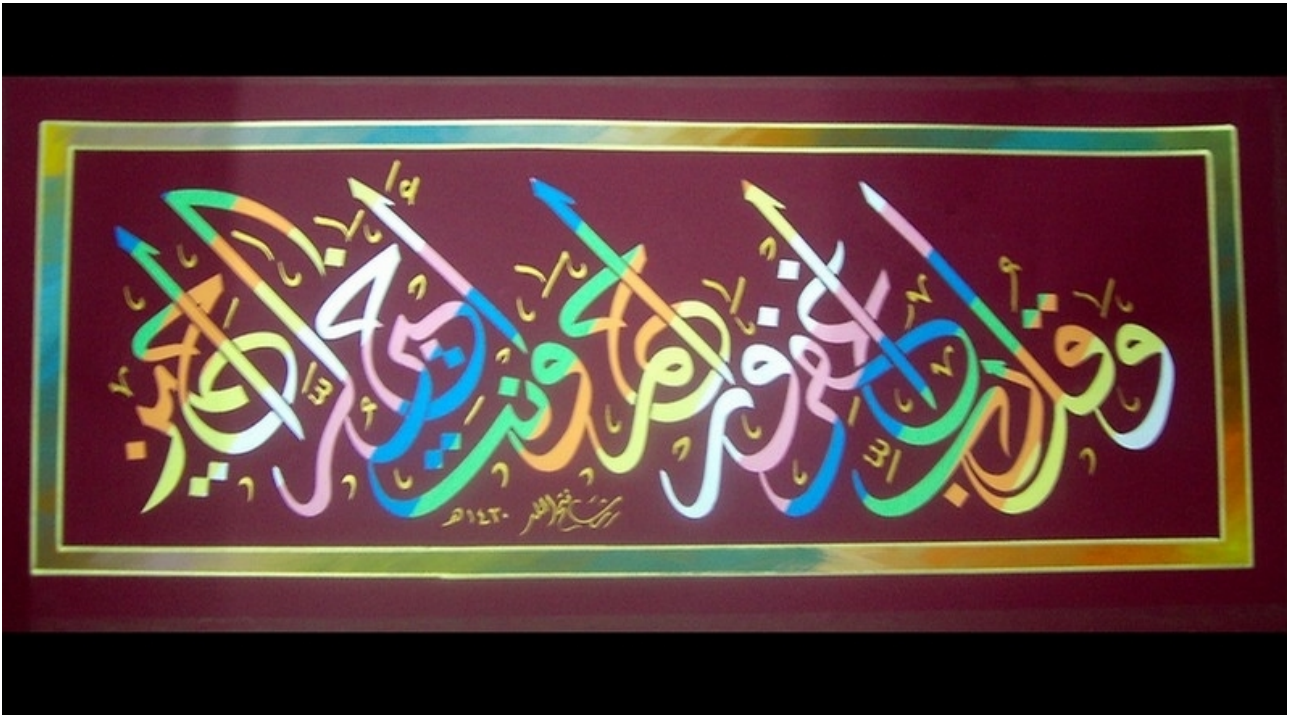 وَقُل رَّبِّ اغْفِرْ وَارْحَمْ وَأَنتَ خَيْرُ الرَّاحِمِينَ
١٤٢٠هـ